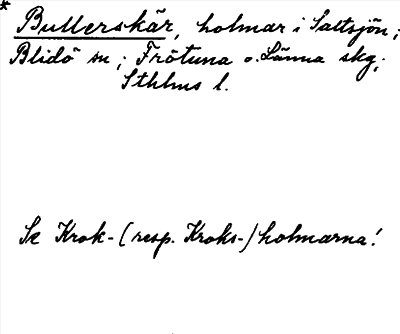 * Bullerskär, holmar i Saltsjön;
Blidö sn; Frötuna o. Länna skg;
Sthlms l.
Se Krok- (resp. Kroks-) holmarna!